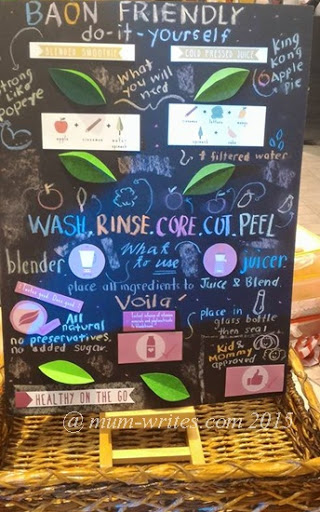 BAON FRIENDLY
do-it-yourself
BLENDED SMOOTHIE
COLD PRESSED JUICE
Strong
Like
Popeye
What
you will
need
King
Kong
Apple
Pie
apple + cinnamon + water
spinach
+ filtered water
WASH. RINSE. CORE. CUT. PEEL
blender
What
to use
juicer
place all ingredients to Juice & Blend.
Voila
All
natural
no preservatives.
no added sugar.
place in
glass bottle
then seal
Kid &
Mommy
approved
HEALTHY ON THE GO
@ mum-writes.com 2015